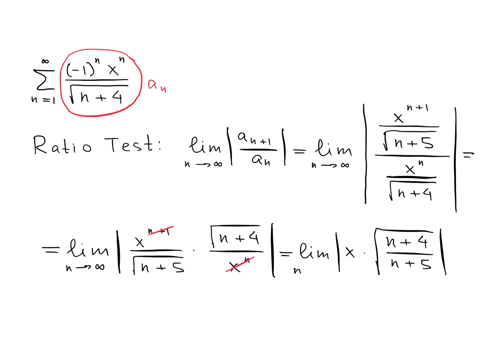 ∑_{n=1}^{∞} \frac{(-1)^n x^n}{\sqrt{n+4}} a_n
Ratio Test: \lim_{n→∞} \left| \frac{a_{n+1}}{a_n} \right| = \lim_{n→∞} \left| \frac{\frac{x^{n+1}}{\sqrt{n+5}}}{\frac{x^n}{\sqrt{n+4}}} \right| =
= \lim_{n→∞} \left| \frac{x^{n+1}}{\sqrt{n+5}} · \frac{\sqrt{n+4}}{x^n} \right| = \lim_{n} \left| x · \sqrt{\frac{n+4}{n+5}} \right|